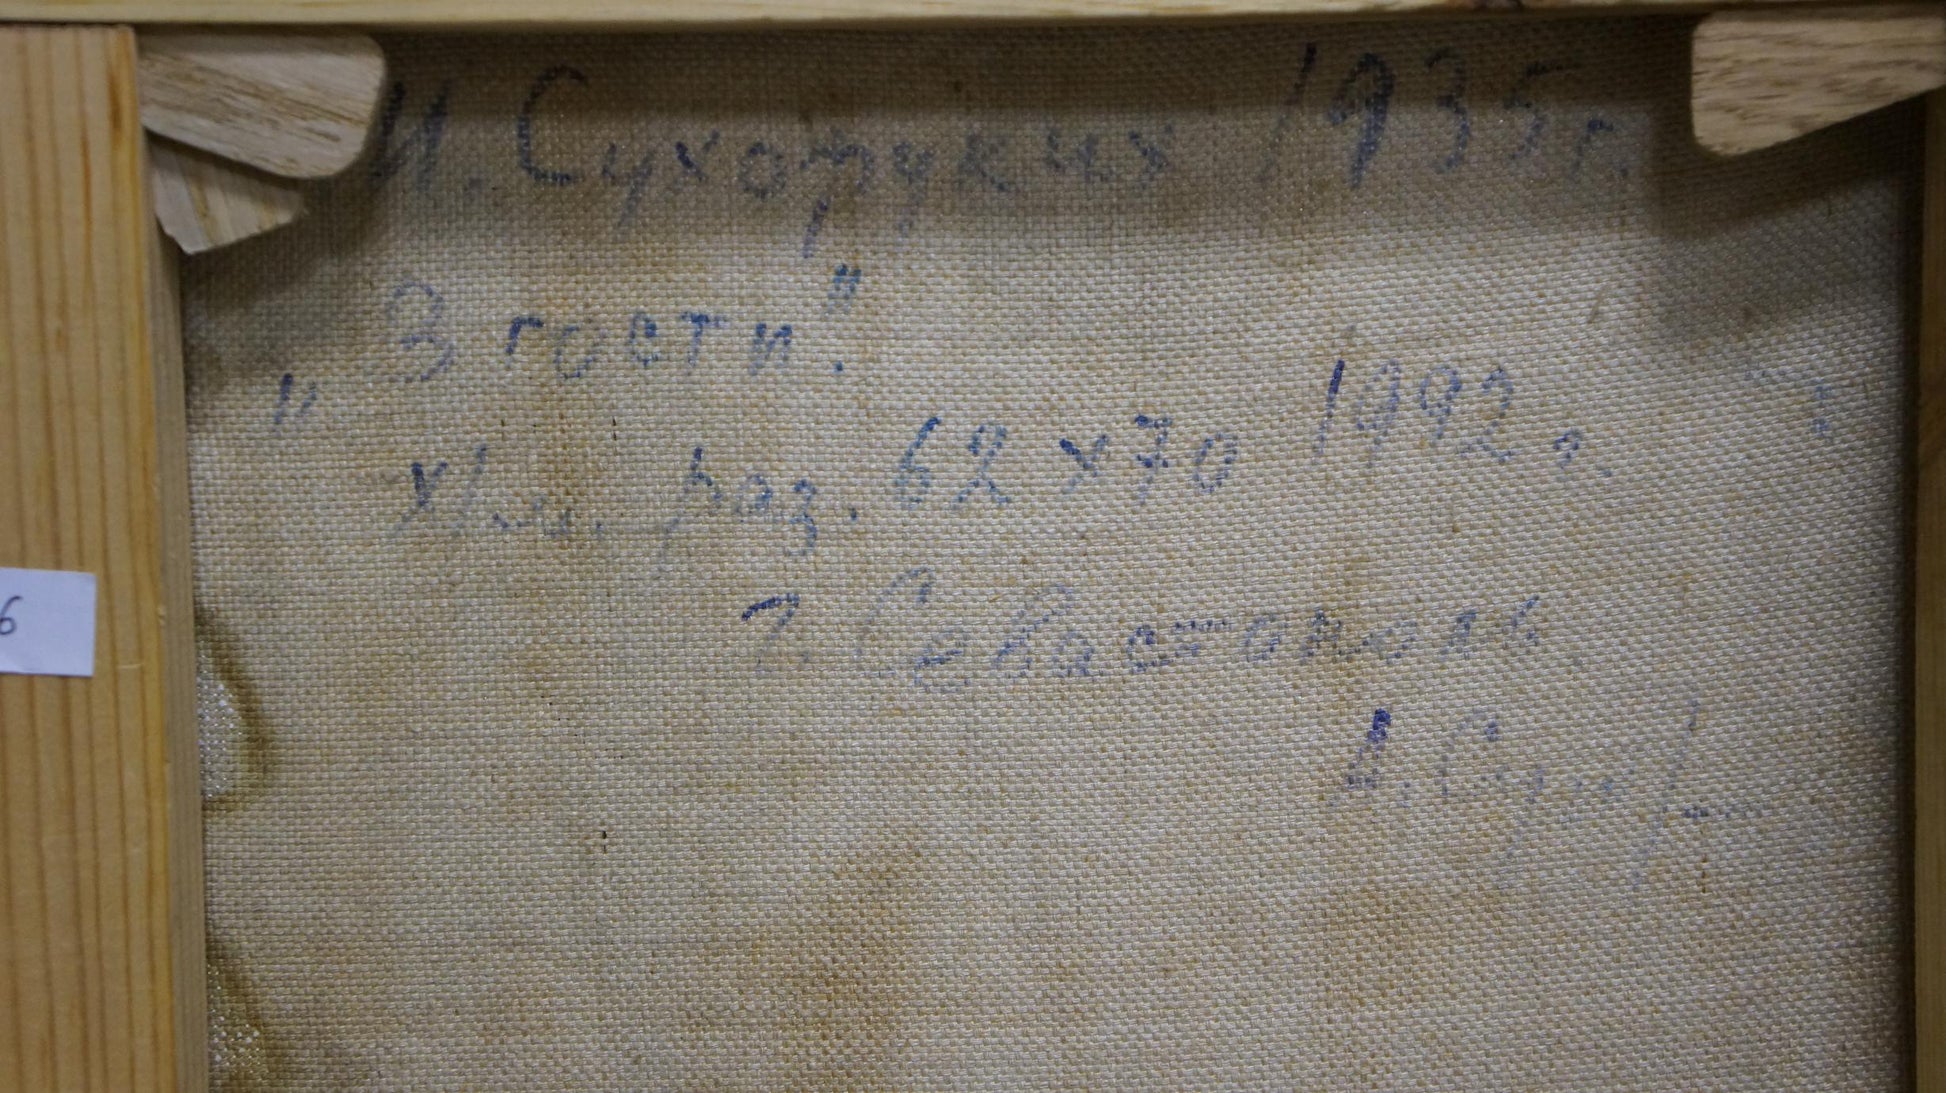 И. Сухоруких 1935 г.
„З гости."
х/м. раз. 62 х 70 1992 г.
г. Севастополь
6